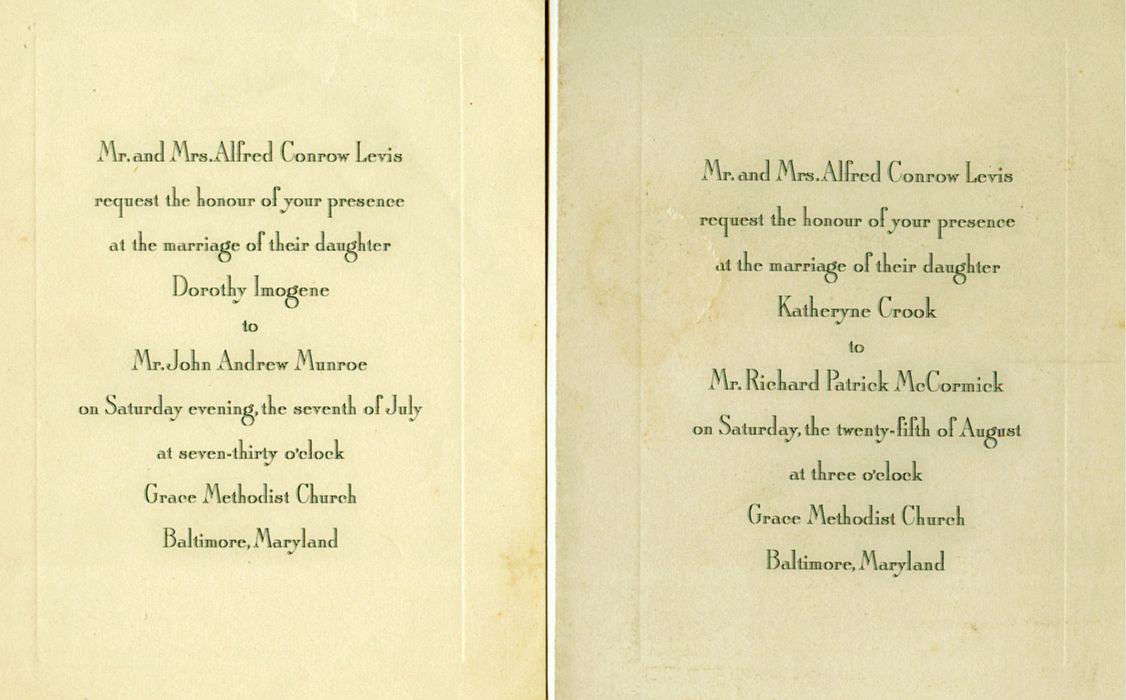 Mr. and Mrs. Alfred Conrow Levis
request the honour of your presence
at the marriage of their daughter
Dorothy Imogene
to
Mr. John Andrew Munroe
on Saturday evening, the seventh of July
at seven-thirty o'clock
Grace Methodist Church
Baltimore, Maryland
Mr. and Mrs. Alfred Conrow Levis
request the honour of your presence
at the marriage of their daughter
Katheryne Crook
to
Mr. Richard Patrick McCormick
on Saturday, the twenty-fifth of August
at three o'clock
Grace Methodist Church
Baltimore, Maryland